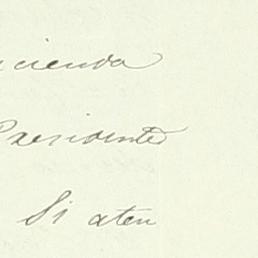 cienda
Presidente
Si aten